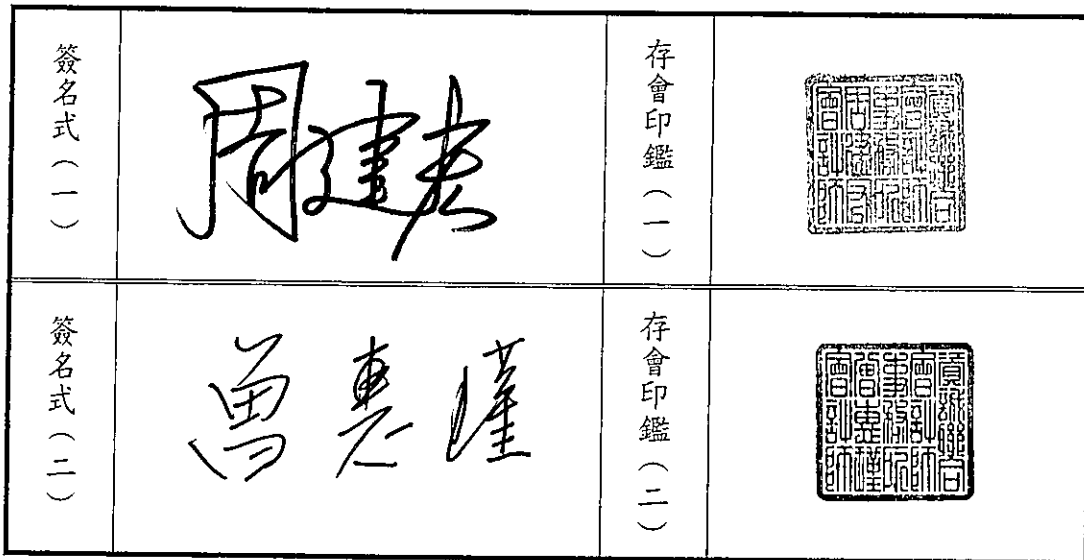 簽名式(一)
周建宏
存會印鑑(一)
資誠聯合
會計師
事務所
周建宏
會計師
簽名式(二)
曾惠瑾
存會印鑑(二)
資誠聯合
會計師
事務所
曾惠瑾
會計師